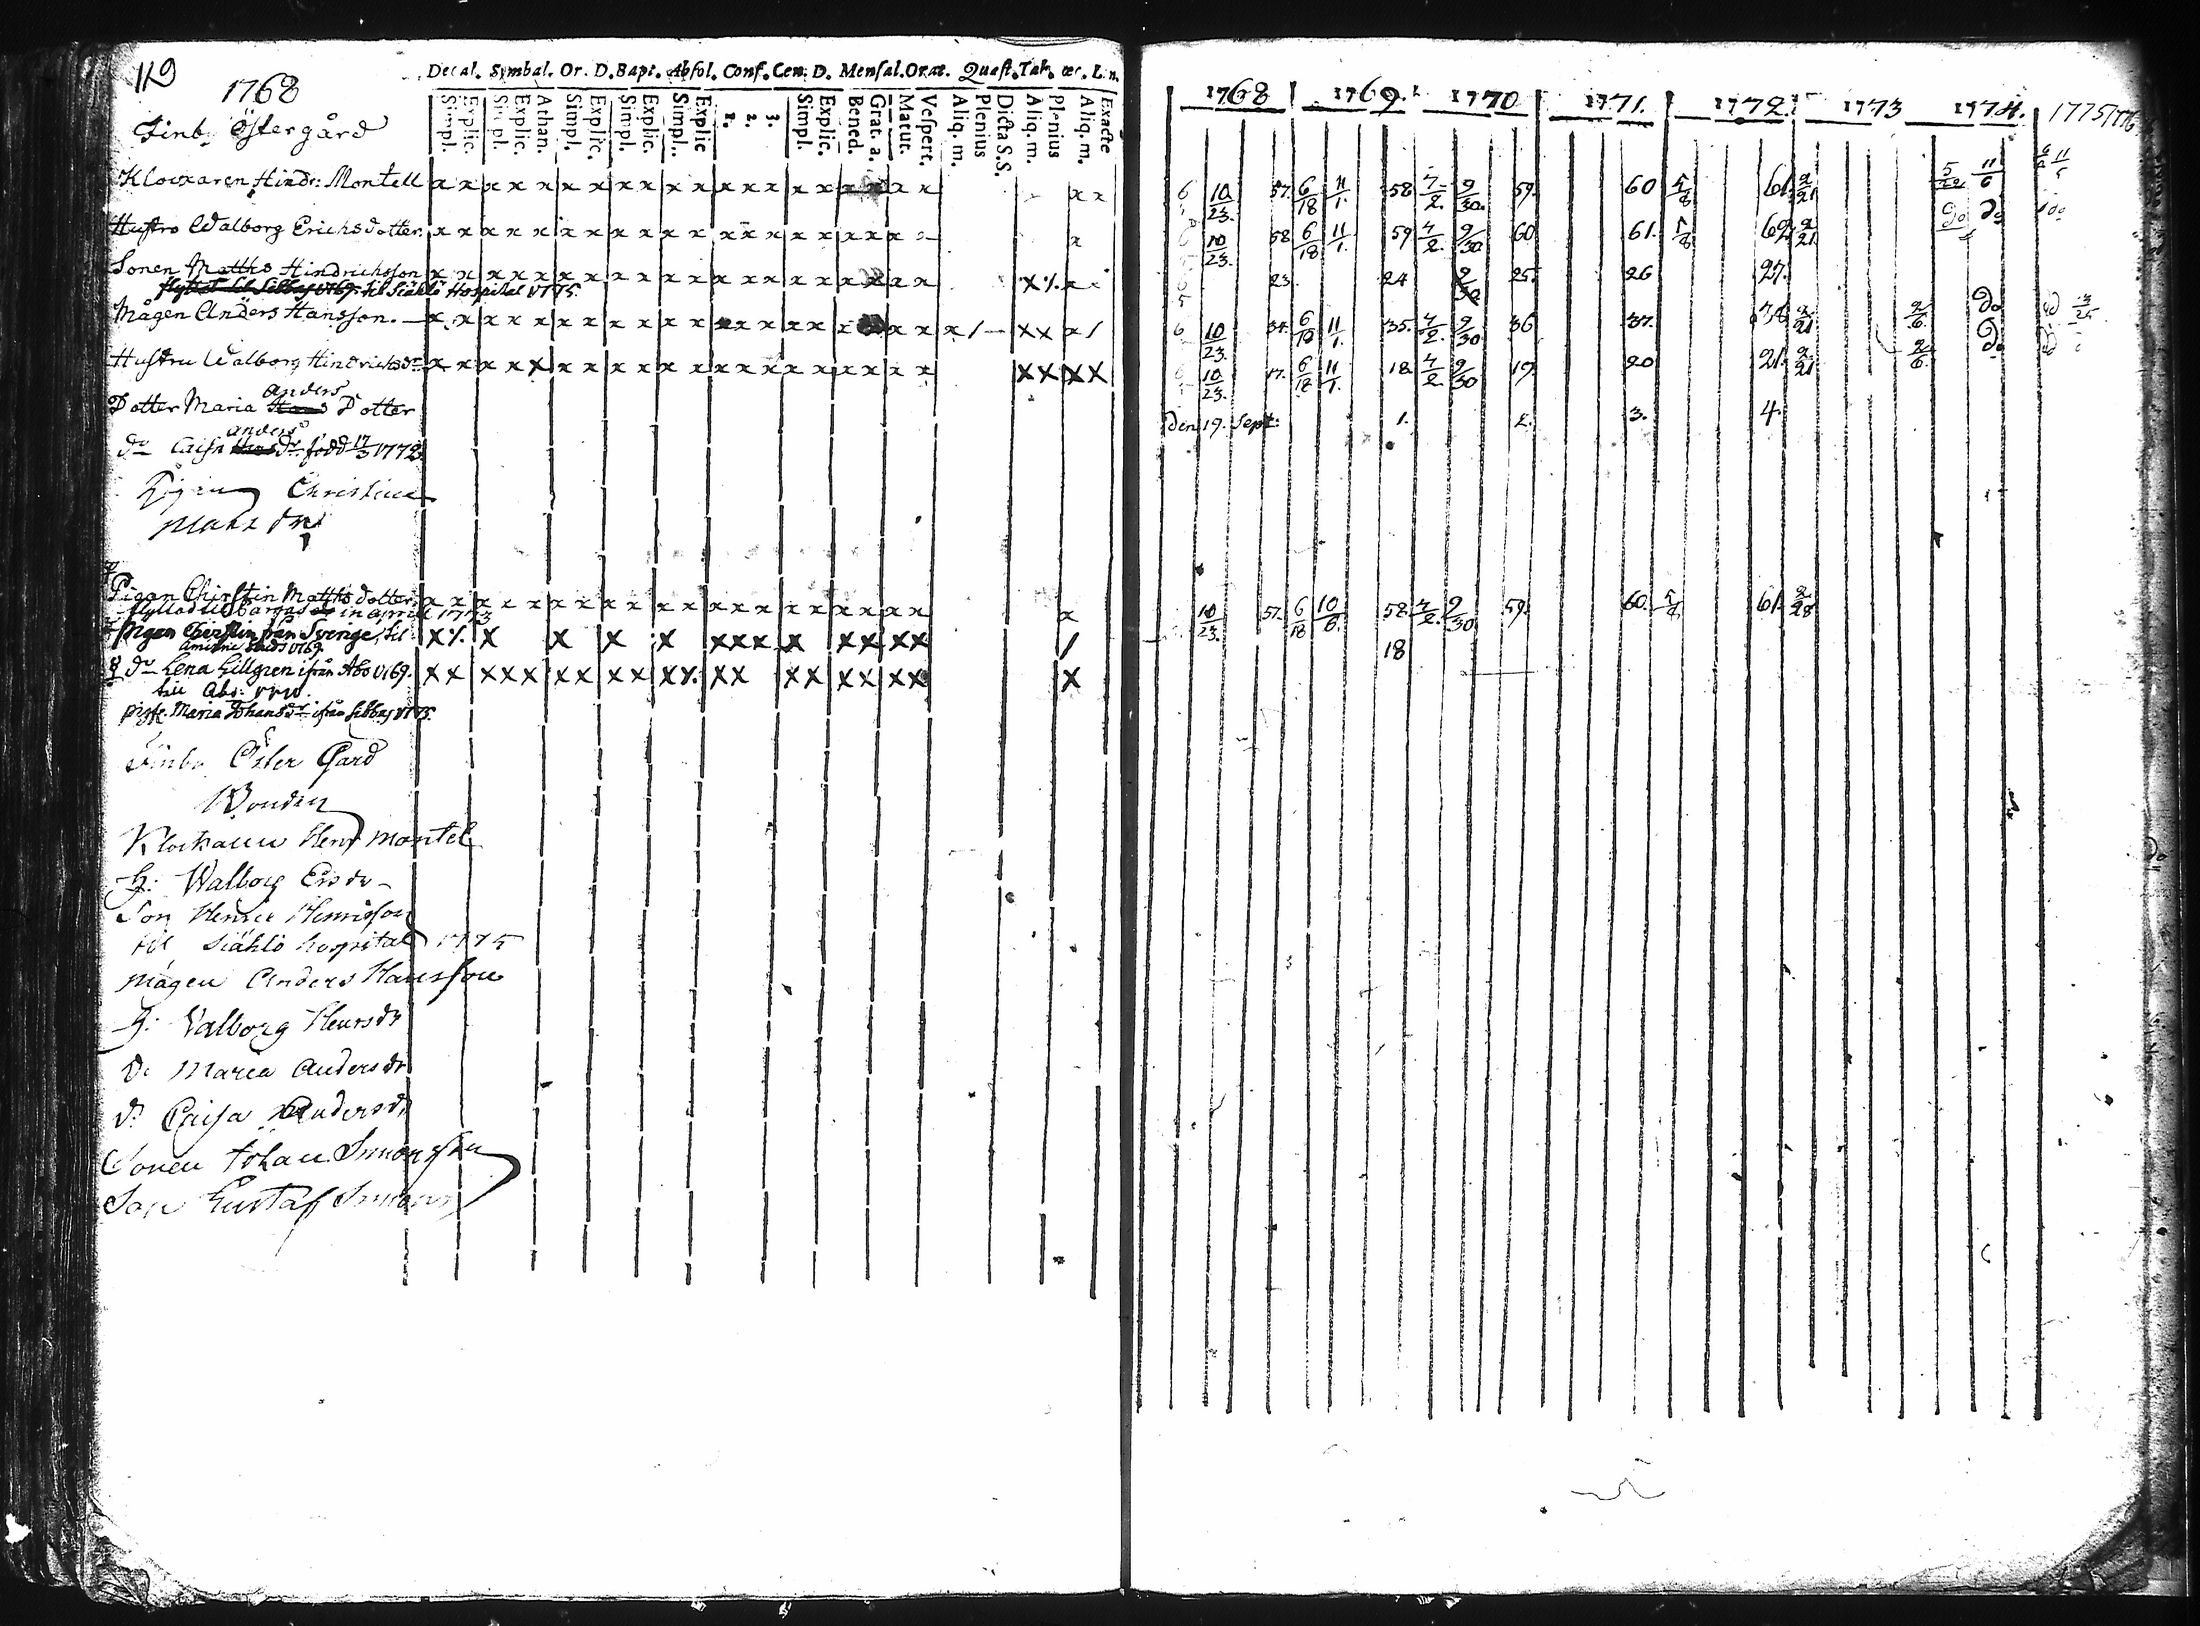 119
1768
Finb. Östergård
Decal. Symbol. Or. D. Bapt. Absol. Conf. Cœn. D. Mensal. Orat. Quæst. Tab. œc.
Simpl. Explic. Simpl. Explic. Athan. Simpl. Explic. Simpl. Explic. Simpl. Explic 1. 2. 3. Simpl. Explic. Bened. Grat. a. Matut. Vespert. Aliq. m. Plenius Dicta S.S. Aliq. m. Plenius Aliq. m. Exacte
Klockaren Hindr: Montell x x x x x x x x x x x x x x x x x x x x x x
Hustro Walborg Erichsdotter x x x x x x x x x x x x x x x x x x x x
Sonen Matths Hindrichsson x x x x x x x x x x x x x x x x x x x x x
flyttat til Sibbas 1769. til Siählö Hospital 1775.
Mågen Anders Hansson. x x x x x x x x x x x x x x x x x x x x x x x x
Hustru Walborg Hindrichsdr x x x x x x x x x x x x x x x x x x x x x x x x
Anders
Dotter Maria Hans Dotter
Anders
do Caisa Hans Dr. född 17/3 1772
Pigan Christina
Mats dr
Pigan Chirstin Matths dotter x x x x x x x x x x x x x x x x x x x x x
flyttad till Pargas in April 1773
Pigan Chirstin från Sverige, til x x x x x x x x x x x x x x
1769
do Lena Gillgren ifrån Åbo 1769. x x x x x x x x x x x x x x x x x x
till Åbo: 1770.
pigg. Maria Johansdr ifrån Sibbas 1775.
Finbo Öster Gård
Bonden
Klockaren Henr Montel
H: Walborg Ersdr
Son Henric Henrisson
til Siählö hospital 1775
Mågen Anders Hansson
H: Valborg Henrsdr
D. Maria Andersdr
D. Caisa Andersdr
Sonen Johan Simonsson
Son Gustaf Simons
1768 1769. 1770 1771. 1772. 1773 1774. 1775 1776
6 10/23. 57. 6/18 11/1. 58 7/2. 9/30. 59. 60 5/8 61. 2/21 11/6
10/23. 58 6/18 11/1. 59 7/2. 9/30 60 61. 5/8 62. 2/21 do
23. 24 9/30 25. 26 27.
6 10/23. 34. 6/18 11/1. 35. 7/2. 9/30 36 37. 38 2/21 2/6. do
10/23. 17. 6/18 11/1. 18. 7/2. 9/30 19. 20 21. 2/21 2/6. do
den 19. Sept: 1. 2. 3. 4.
10/23. 57. 6/18 10/6. 58. 7/2. 9/30 59. 60. 5/8 61. 2/28
18